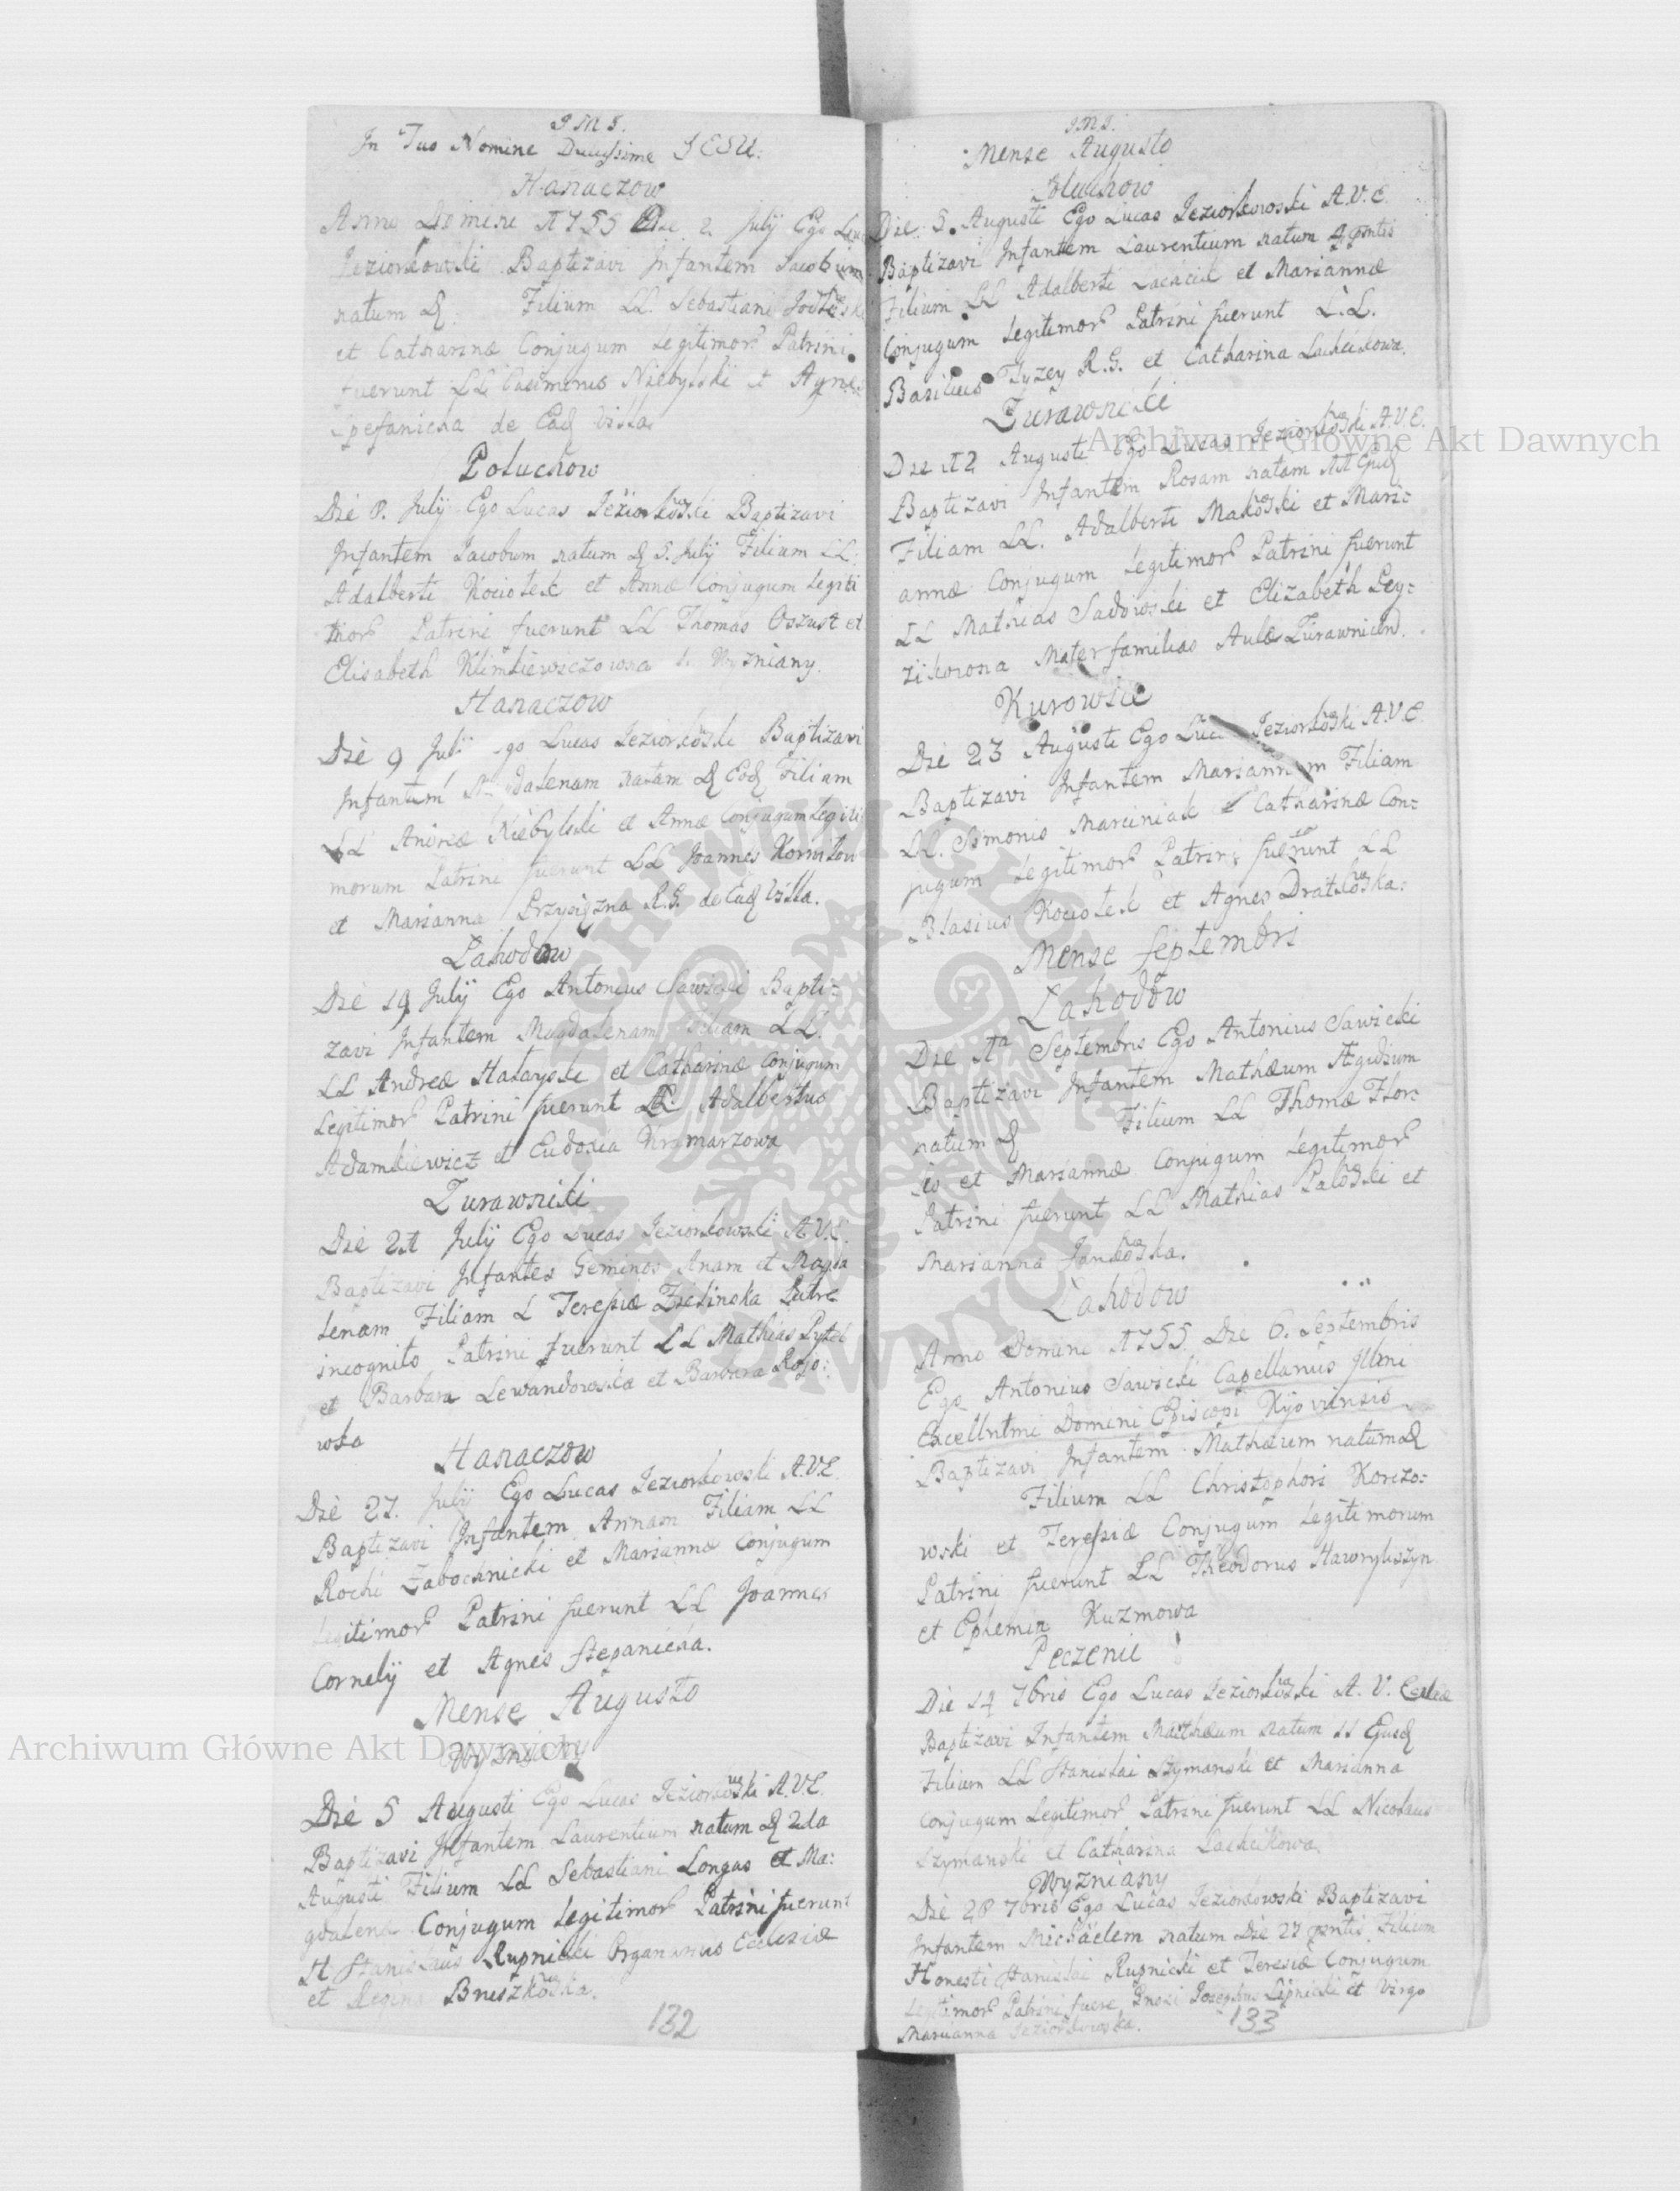 J M J.
In Tuo Nomine Dulcissime JESU.
Hanaczow
Anno Domini 1755 Die 2 July Ego
Jeziorkowski Baptizavi Infantem Jacobum
natum d. Filium LL. Sebastiani
et Catharinæ Conjugum Legitimor Patrini
fuerunt LL Casimirus et
de Ead Villa
Poluchow
Die 8. July Ego Lucas Jeziorkowski Baptizavi
Infantem Jacobum natum d 5. July Filium LL.
Adalberti Kociolek et Annæ Conjugum Legiti
mor Patrini fuerunt LL Thomas Oszust et
Elisabeth Klimkiewiczowna Wyzniany.
Hanaczow
Die 9 July Lucas Jeziorkowski Baptizavi
Infantem natam d Eod Filiam
LL Andreæ et Annæ Conjugum Legiti
morum Patrini fuerunt LL Joannes
et Marianna R.G. de Ead Villa.
Lahodow
Die 19 July Ego Antonius Sawicki Bapti:
zavi Infantem Magdalenam Filiam LL.
LL Andreæ et Catharinæ Conjugum
Legitimor Patrini fuerunt LL Adalbertus
Adamkiewicz et Eudoxia Kramarzowa
Zurawniki
Die 21 July Ego Lucas Jeziorkowski A.V.E.
Baptizavi Infantes Geminos Anam et Magda
lenam Filiam L Teresiæ Zielinska Patre
incognito Patrini fuerunt LL Mathias
et Barbara Lewandowska et Barbara Rojo:
wska
Hanaczow
Die 27. July Ego Lucas Jeziorkowski A.V.E.
Baptizavi Infantem Annam Filiam LL
Rochi Zabochnicki et Mariannæ Conjugum
Legitimor Patrini fuerunt LL Joannes
Cornelij et Agnes Stepanicha.
Mense Augusto
Wyzniany
Die 5 Augusti Ego Lucas Jeziorkowski A.V.E.
Baptizavi Infantem Laurentium natum d 2da
Augusti Filium LL Sebastiani Longas et Ma:
gdalenæ Conjugum Legitimor Patrini fuerunt
H Stanislaus Rupnicki Organarius Ecclesiæ
et Regina Bruszkowska.
132
J M J.
Mense Augusto
Die 5. Augusti Ego Lucas Jeziorkowski A.V.E.
Baptizavi Infantem Laurentium natum 4 pntis
Filium LL Adalberti et Mariannæ
Conjugum Legitimor Patrini fuerunt L.L.
Basilius R.G. et Catharina
Zurawniki
Die 12 Augusti Ego Lucas Jeziorkowski A.V.E.
Baptizavi Infantem Rosam natam 11 Ejusd
Filiam LL. Adalberti Makowski et Mari:
annæ Conjugum Legitimor Patrini fuerunt
LL Mathias Sadowski et Elizabeth
Materfamilias Aulæ
Kurowice
Die 23 Augusti Ego Jeziorkowski A.V.E.
Baptizavi Infantem Mariannam Filiam
LL. Simonis Marciniak et Catharinæ Con:
jugum Legitimor Patrini fuerunt LL
Blasius Kociolek et Agnes
Mense Septembri
Lahodow
Die 1ma Septembris Ego Antonius Sawicki
Baptizavi Infantem Mathæum Ægidium
natum d Filium LL Thomæ
et Mariannæ Conjugum Legitimor
Patrini fuerunt LL Mathias et
Marianna Jankowska.
Lahodow
Anno Domini 1755 Die 6. Septembris
Ego Antonius Sawicki Capellanus Illmi
Excellntmi Domini Episcopi Kijoviensis
Baptizavi Infantem Mathæum natum d
Filium LL Christophori Korczo:
wski et Teresiæ Conjugum Legitimorum
Patrini fuerunt LL Theodorus Hawryliszyn
et Ephemia Kuzmowa
Peczenie
Die 14 7bris Ego Lucas Jeziorkowski A. V.
Baptizavi Infantem Mathæum natum 11 Ejusd
Filium LL Stanislai Szymanski et Marianna
Conjugum Legitimor Patrini fuerunt LL Nicolaus
Szymanski et Catharina
Wyzniany
Die 28 7bris Ego Lucas Jeziorkowski Baptizavi
Infantem Michaelem natum Die 27 pntis Filium
Honesti Stanislai Rupnicki et Teresiæ Conjugum
Legitimor Patrini fuere Josephus Lipnicki et Virgo
Marianna Jeziorkowska.
133
Archiwum Główne Akt Dawnych
Archiwum Główne Akt Dawnych
ARCHIWUM GŁÓWNE AKT DAWNYCH